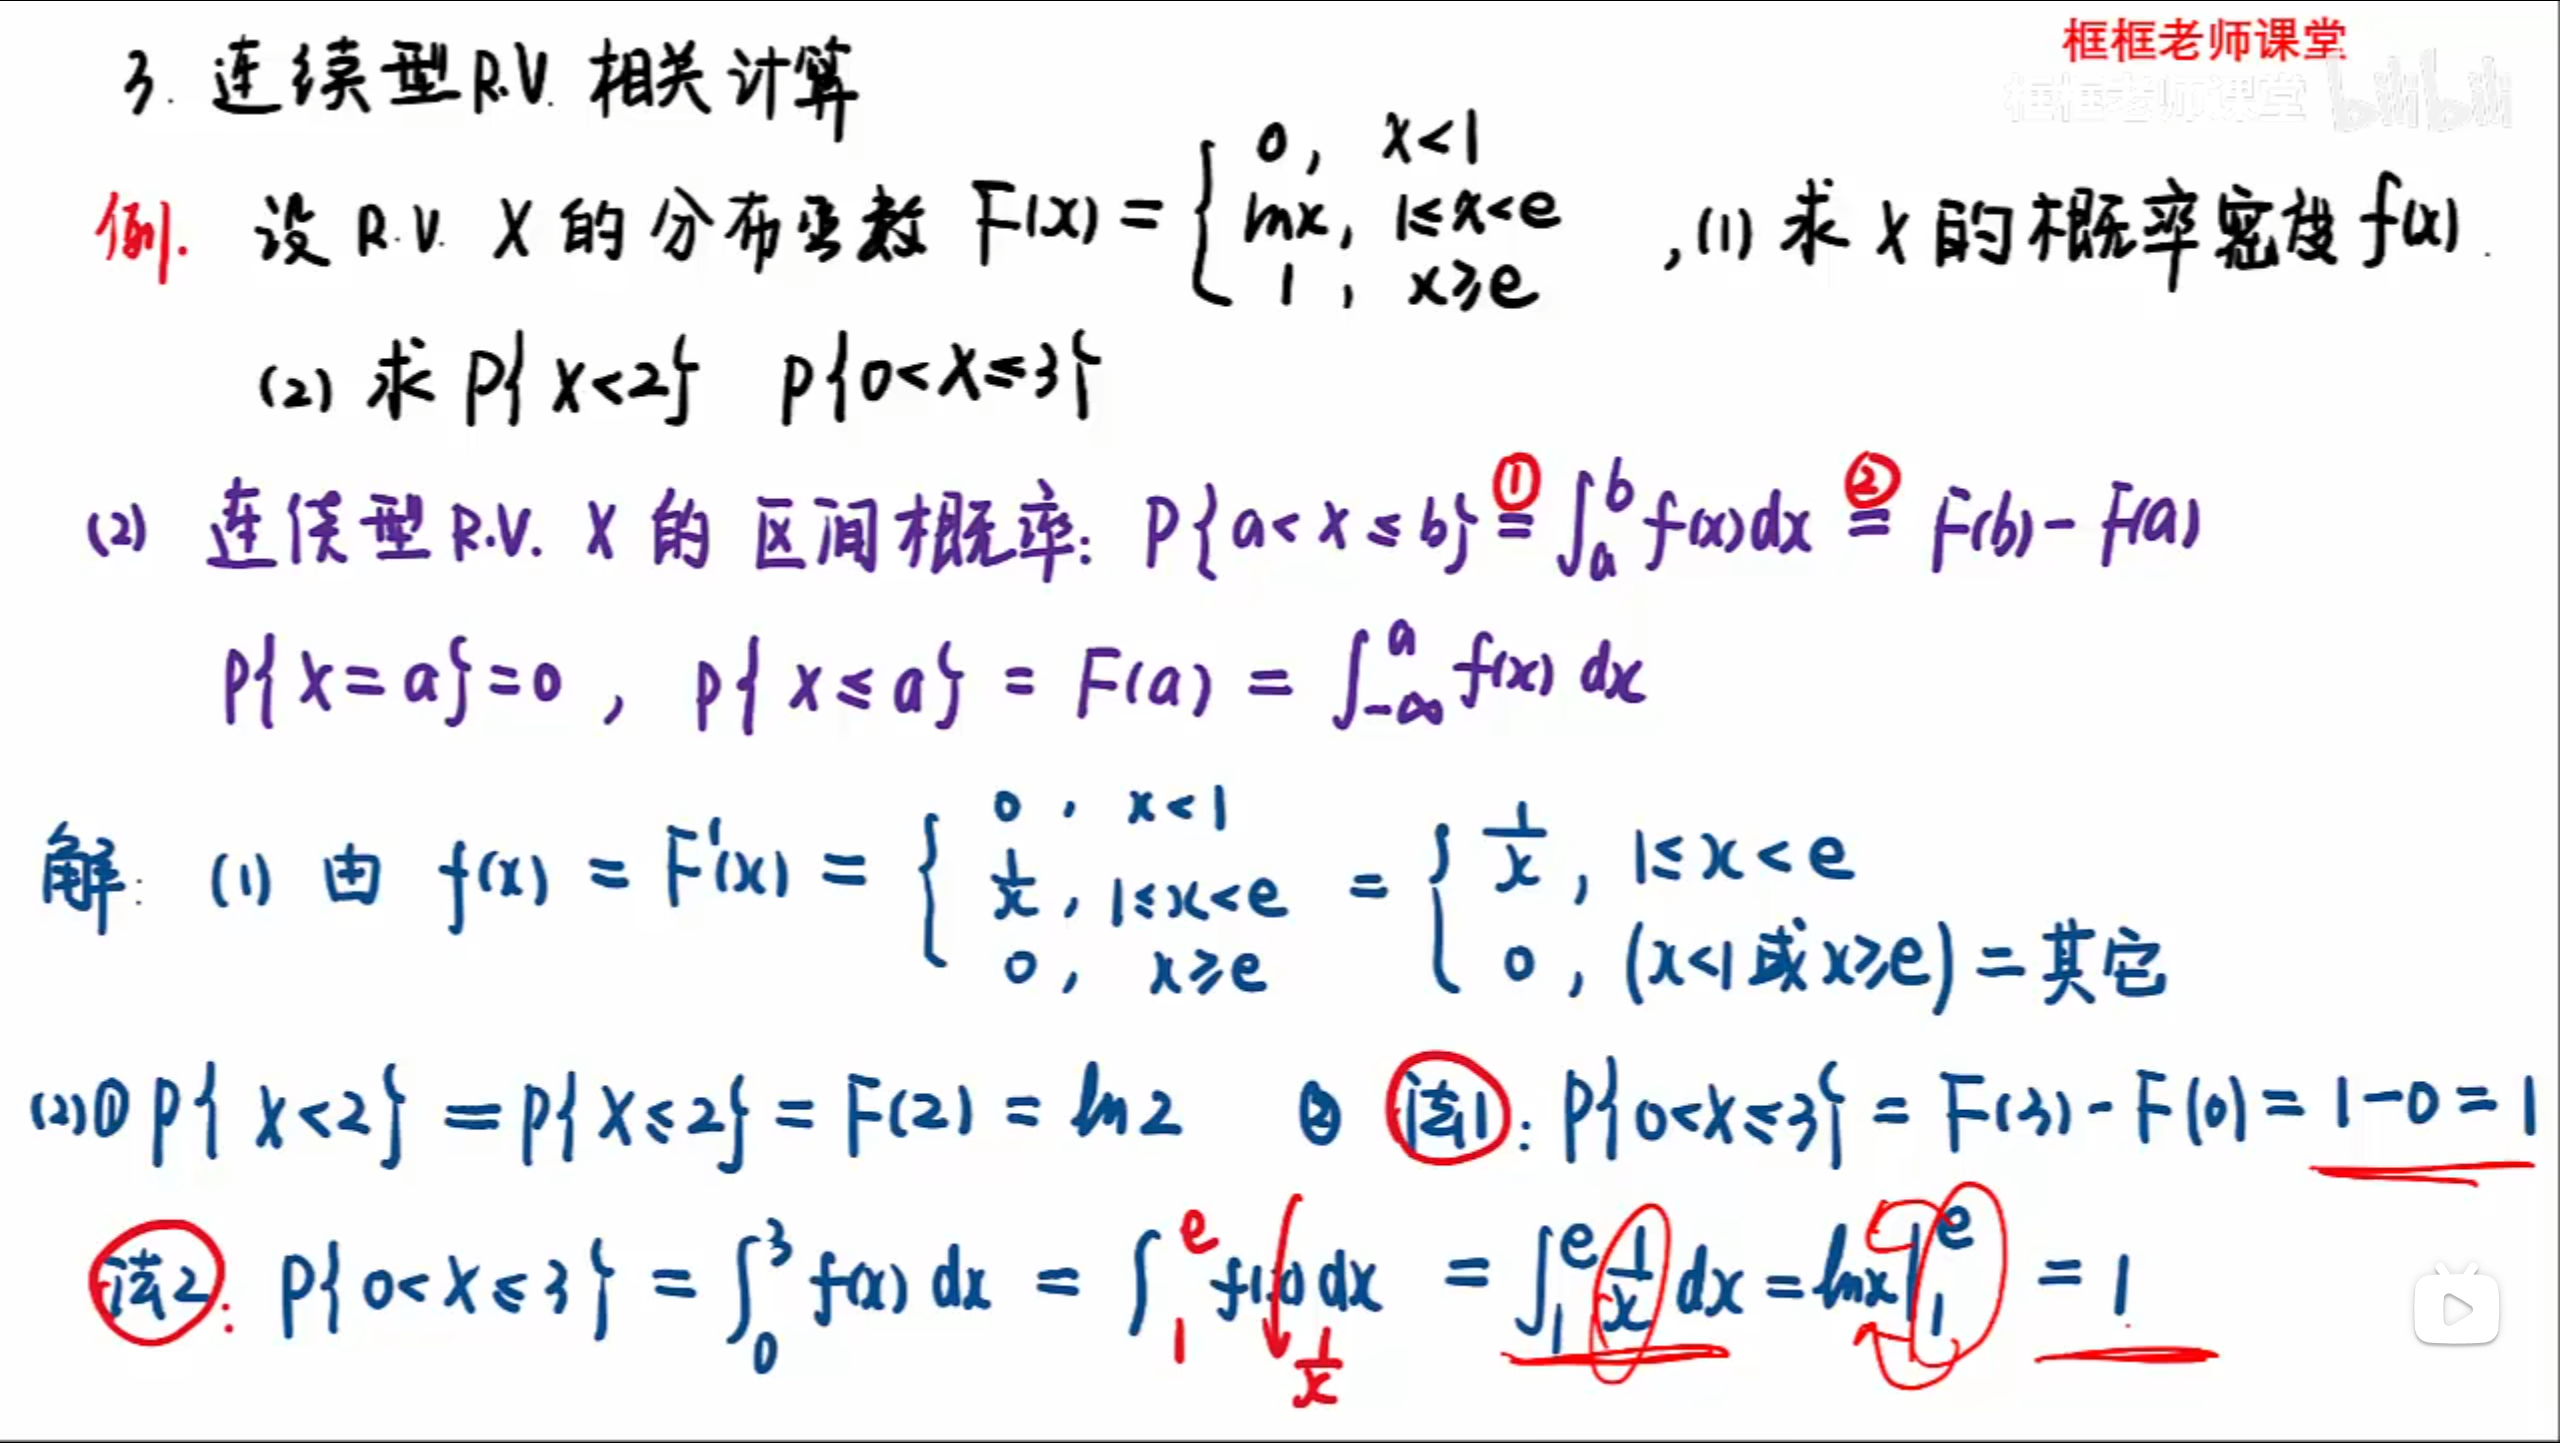 框框老师课堂
框框老师课堂 bilibili
3. 连续型R.V. 相关计算
例. 设 R.V. X 的分布函数 F(x) = { 0, x<1
lnx, 1≤x<e
1, x≥e
,(1) 求 X 的概率密度 f(x).
(2) 求 P{X<2} P{0<X≤3}
(2) 连续型R.V. X 的 区间概率: P{a<X≤b} ①= ∫_a^b f(x)dx ②= F(b)-F(a)
P{X=a}=0, P{X≤a} = F(a) = ∫_{-∞}^a f(x) dx
解: (1) 由 f(x) = F'(x) = { 0, x<1
1/x, 1≤x<e
0, x≥e
= { 1/x, 1≤x<e
0, (x<1 或 x≥e) = 其它
(2)① P{X<2} = P{X≤2} = F(2) = ln2 ② 法1: P{0<X≤3} = F(3)-F(0) = 1-0 = 1
法2: P{0<X≤3} = ∫_0^3 f(x) dx = ∫_1^e f(x) dx = ∫_1^e 1/x dx = lnx|_1^e = 1
1/x